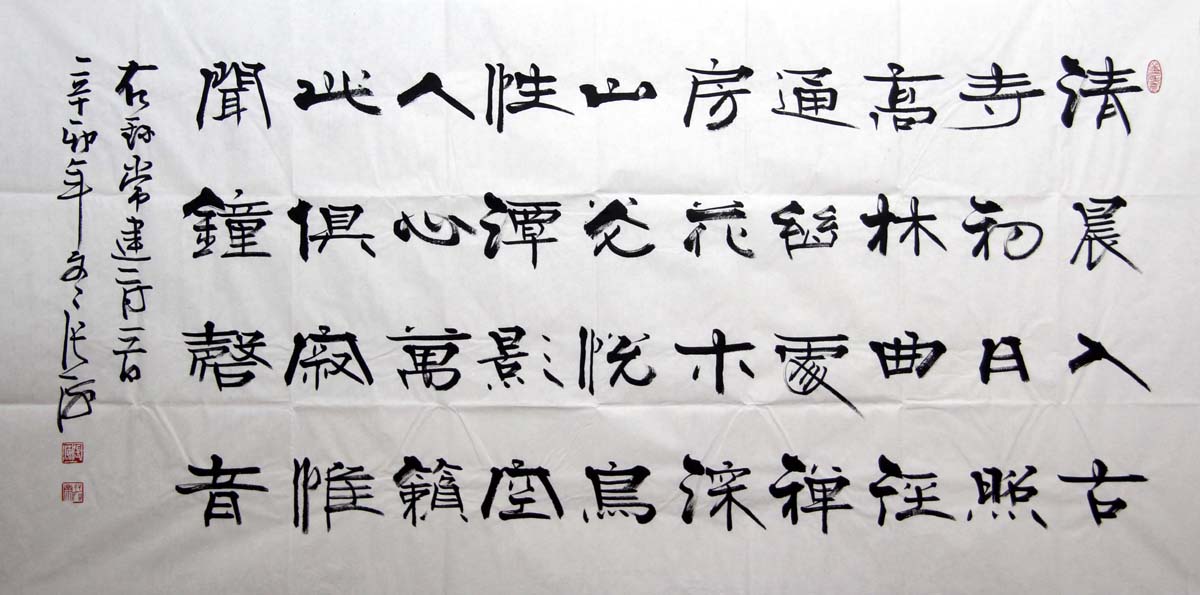 清晨入古
寺初日照
高林曲径
通幽處禅
房花木深
山光悦鳥
性潭影空
人心萬籟
此俱寂惟
聞鐘磬音
右錄常建
辛卯年